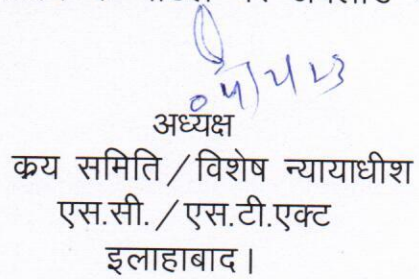 अध्यक्ष
क्रय समिति / विशेष न्यायाधीश
एस.सी. / एस.टी.एक्ट
इलाहाबाद।